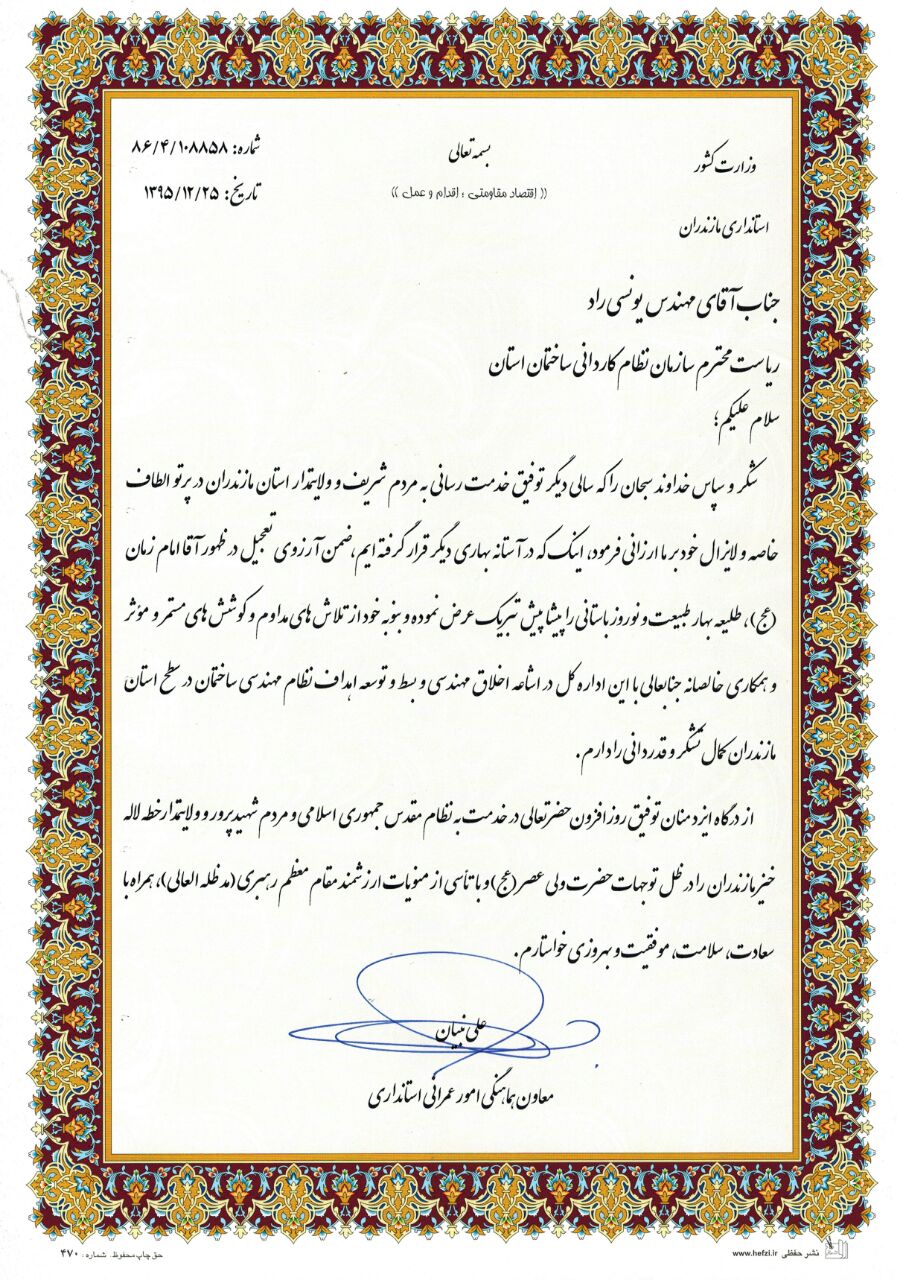 بسمه تعالی
(( اقتصاد مقاومتی ؛ اقدام و عمل ))
وزارت کشور
استانداری مازندران
شماره: ۸۶/۴/۱۰۸۸۵۸
تاریخ: ۱۳۹۵/۱۲/۲۵
جناب آقای مهندس یونسی راد
ریاست محترم سازمان نظام کاردانی ساختمان استان
سلام علیکم؛
شکر و سپاس خداوند سبحان را که سالی دیگر توفیق خدمت رسانی به مردم شریف و ولایتمدار استان مازندران در پرتو الطاف
خاصه و لایزال خود بر ما ارزانی فرمود، اینک که در آستانه بهاری دیگر قرار گرفته ایم، ضمن آرزوی تعجیل در ظهور آقا امام زمان
(عج)، طلیعه بهار طبیعت و نوروز باستانی را پیشاپیش تبریک عرض نموده و بنوبه خود از تلاش های مداوم و کوشش های مستمر و مؤثر
و همکاری خالصانه جنابعالی با این اداره کل در اشاعه اخلاق مهندسی و بسط و توسعه اهداف نظام مهندسی ساختمان در سطح استان
مازندران کمال تشکر و قدردانی را دارم.
از درگاه ایزد منان توفیق روز افزون حضرتعالی در خدمت به نظام مقدس جمهوری اسلامی و مردم شهید پرور و ولایتمدار خطه لاله
خیز مازندران را در ظل توجهات حضرت ولی عصر (عج) و با تأسی از منویات ارزشمند مقام معظم رهبری (مد ظله العالی)، همراه با
سعادت، سلامت، موفقیت و بهروزی خواستارم.
علی نبیان
معاون هماهنگی امور عمرانی استانداری
نشر حفظی www.hefzi.ir
حق چاپ محفوظ. شماره: ۴۷۰